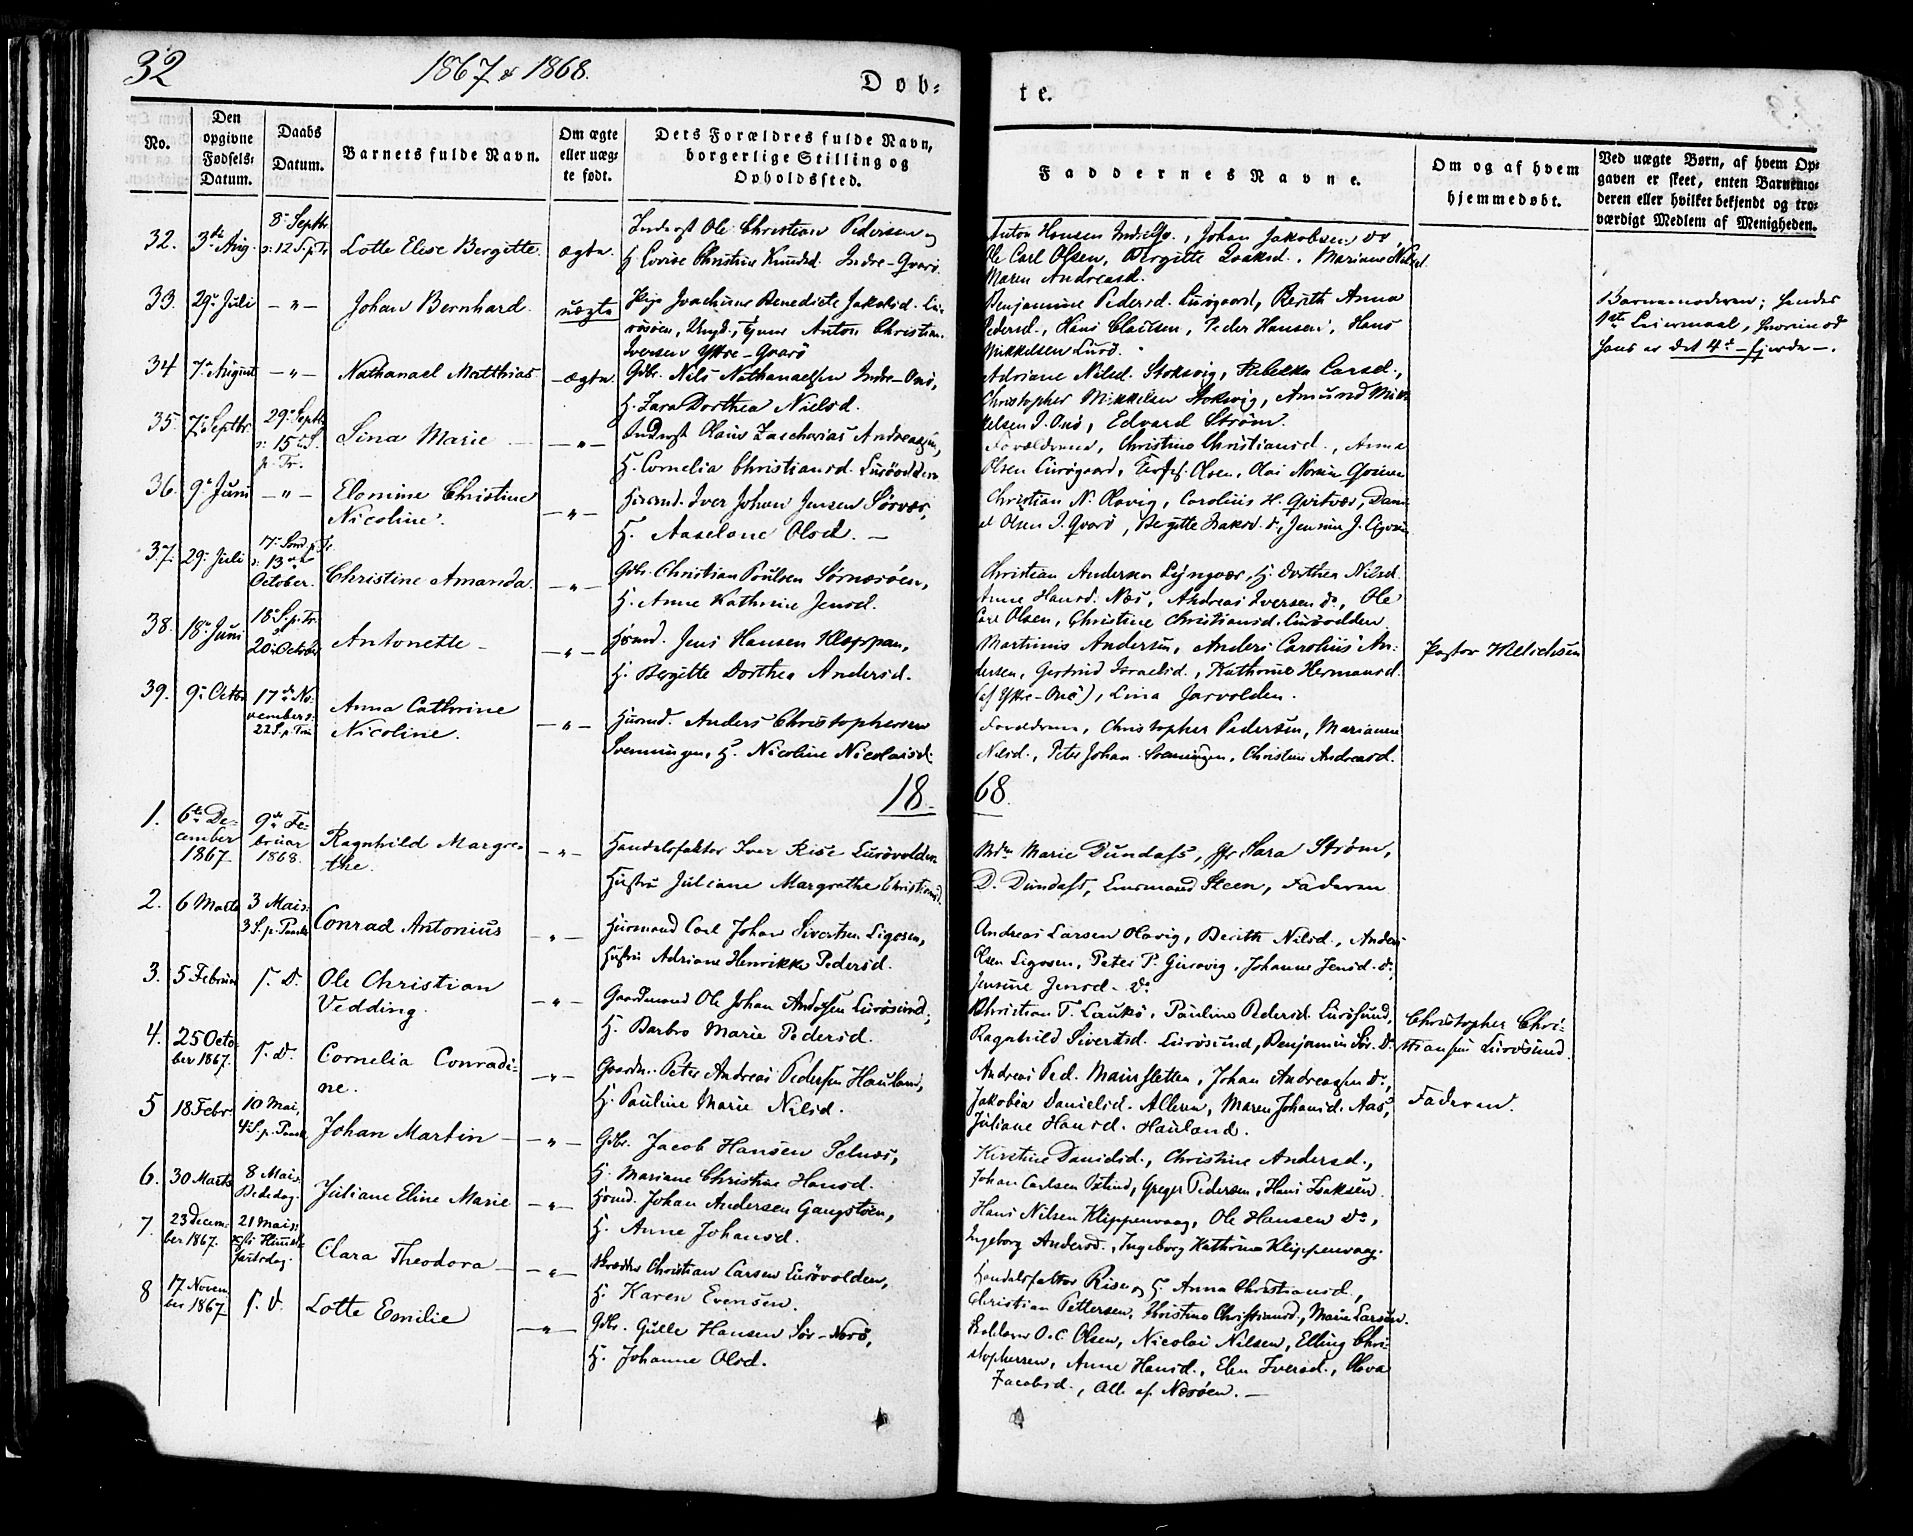 32
1867 & 1868.
Døb-
te.
No.
Den
opgivne
Fødsels-
Datum.
Daabs
Datum.
Barnets fulde Navn.
Om ægte
eller uæg-
te født.
Dets Forældres fulde Navn,
borgerlige Stilling og
Opholdssted.
Faddernes Navne.
Om og af hvem
hjemmedøbt.
Ved uægte Børn, af hvem Op-
gaven er skeet, enten Barnemo-
deren eller hvilket bekjendt og tro-
værdigt Medlem af Menigheden.
32.
3die Aug.
8de Septbr
Lotte Elise Bergitte.
ægte.
Ole Christian Pedersen og
H. Lovise Christine Knudsd. Indre-Qvarø
Anton Hansen, Johan Jakobsen do,
Ole Carl Olsen, Bergitte Isaksd., Mariane Nilsd.
Maren Andreasd.
33.
29de Juli
- " -
Johan Bernhard.
uægte
Pige Joachime Benedicte Jakobsd. Lu-
røsøen, Ungd., Anton Christian
Iversen Yttre-Qvarø
Benjamine Pedersd. Lurøgaard, Berith Anna
Pedersd., Hans Clausen, Peder Hansen, Hans
Mikkelsen Lurø.
Barnemoderen; hendes
1ste Leiermaal, hvorimod
hans er det 4de - fjerde -.
34
7de August
- " -
Nathanael Matthias
ægte.
Gdbr. Nils Nathanaelsen Indre-Onø,
H. Zara Dorthea Nielsd.
Adriane Nilsd. Stoksvig, Rebekka Larsd.,
Christopher Mikkelsen Stoksvig, Amund Mik-
kelsen I. Onø, Edvard Strøm.
35.
7de Septbr.
29de Septbr
15de S.
p. Tr.
Lina Marie -
- " -
Olaus Zacharias Andreassen,
H. Cornelia Christiansd. Lurøvolden
Forældrene, Christine Christiansd., Anna
Olsen Lurøgaard, Olsen, Olai
36.
9de Juni
- " -
Elomine Christine
Nicoline.
- " -
Huusmd. Iver Johan Jensen Sørvær,
H. Aaselone Olsd. -
Christian N. Olavig, Carolius H. Qvitvær, Dani-
el Olsen I. Qvarø, Bergitte Isaksd. do, Jensine J.
37.
29de Juli
17de Sønd. p. Tr.
13de
October.
Christine Amanda.
- " -
Gdbr. Christian Poulsen Sørnæsøen,
H. Anne Kathrine Jensd.
Christian Andersen Lyngvær, H. Dorthea Nilsd.
Anne Hansd. Næs, Andreas Iversen do, Ole
Carl Olsen, Christine Christiansd. Lurøvolden.
38.
18de Juni
18de S. p. Tr.
20de October
Antonette -
- " -
Huusmd. Jens Hansen Kloppan,
H. Bergitte Dorthea Andersd.
Martinus Andersen, Anders Carolius An-
dersen, Gertrud Israelsd., Kathrine Hermansd.
(af Yttre-Onø), Lina Jarvolden.
Pastor
39.
9de Octbr
17de No-
vember
22 S. p. Trin
Anna Cathrine
Nicoline.
- " -
Huusmd. Anders Christophersen
Svenningen, H. Nicoline Nicolaisd.
Forældrene, Christopher Pedersen, Mariane
Nilsd., Peter Johan Svenningen, Christine Andreasd.
18
68.
1.
6te De-
cember
1867
9de Fe-
bruar
1868.
Ragnhild Margre-
the.
- " -
Handelsfaktor Iver Rise Lurøvolden
Hustru Juliane Margrethe Christiansd.
Mdm Marie Dundass, Sara Strøm,
D. Dundass, Steen, Faderen
2.
6 Marts
3 Mai
3 S. p. Paaske
Conrad Antonius
- " -
Huusmand Carl Johan Sivertsen Ligosen,
Hustru Adriane Henrikke Pedersd.
Andreas Larsen Olavig, Berith Nilsd., Anders
Olsen Ligosen, Peter P. Girsavig, Johanne Jensd. do,
Jensine Jensd. do
3.
5 Februar
s. D.
Ole Christian
Vedding.
- " -
Gaardmand Ole Johan Andersen Lurøsund,
H. Barbro Marie Pedersd.
Christian T. Laukø, Pauline Pedersd. Lurøsund,
Ragnhild Sivertsd. Lurøsund, Benjamin Sør. Do.
Christopher Chri-
stiansen Lurøsund.
4.
25 Octo-
ber 1867.
s. D.
Cornelia Conradi-
ne.
- " -
Gaardm. Peter Andreas Pedersen Hauland,
H. Pauline Marie Nilsd.
Andreas Ped. Mairsletten, Johan Andreassen do,
Jakobea Danielsd. Alleren, Maren Johansd. Aas,
Juliane Hansd. Hauland.
Faderen.
5
18 Febr.
10 Mai,
4 S. p. Paaske
Johan Martin -
- " -
Gdbr. Jacob Hansen Selnæs,
H. Mariane Christine Hansd.
Kirstine Danielsd., Christine Andersd.,
Johan Carlsen Øxtind, Greger Pedersen, Hans Isaksen.
6.
30 Marts
8 Mai
Bededag.
Juliane Eline Marie
- " -
Huusmd. Johan Andersen Gangstøen,
H. Anne Johansd.
Hans Nilsen Klippenvaag, Ole Hansen Do,
Ingeborg Andersd., Ingeborg Kathrine Klippenvaag.
7.
23 Decem-
ber 1867.
21 Mai
Christi Himmel-
fartsdag.
Clara Theodora -
- " -
Skrædder Christian Larsen Lurøvolden,
H. Karen Evensen.
Handelsfaktor Rise og H. Anna Christiansd.,
Christian Pettersen, Christine Christiansd., Marie Larsen.
8
17 Novem-
ber 1867
s. D.
Lotte Emilie
- " -
Gdbr. Gulle Hansen Sør-Nesø,
H. Johanne Olsd.
Skolelærer O. C. Olsen, Nicolai Nilsen, Elling Chri-
stophersen, Anne Hansd., Elen Iversd., Olava
Jacobsd., Alle af Næsøen. -